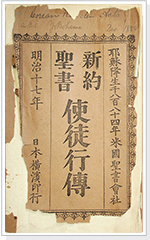 耶穌降生千八百八十四年 米國聖書會社
新約
聖書
使徒行傳
明治十七年
日本橫濱印行